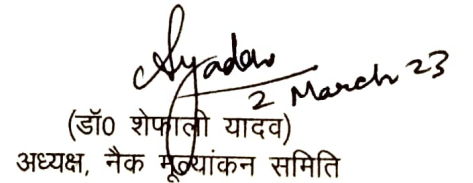 Syadav
2 March 23
(डॉ0 शेफाली यादव)
अध्यक्ष, नैक मूल्यांकन समिति